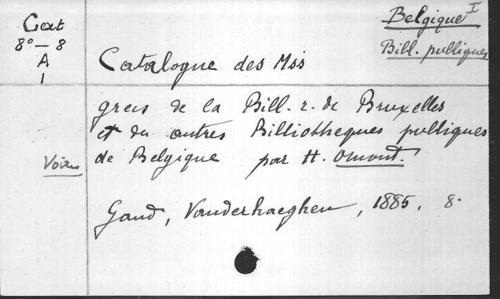 Cat
8° — 8
A
1
Belgique I
Bill. publiques
Catalogue des Mss
grecs de la Bill. r. de Bruxelles
et du autres Billiotheques publiques
de Belgique par H. Omont.
Voir
Gand, Vanderhaeghen, 1885, 8.